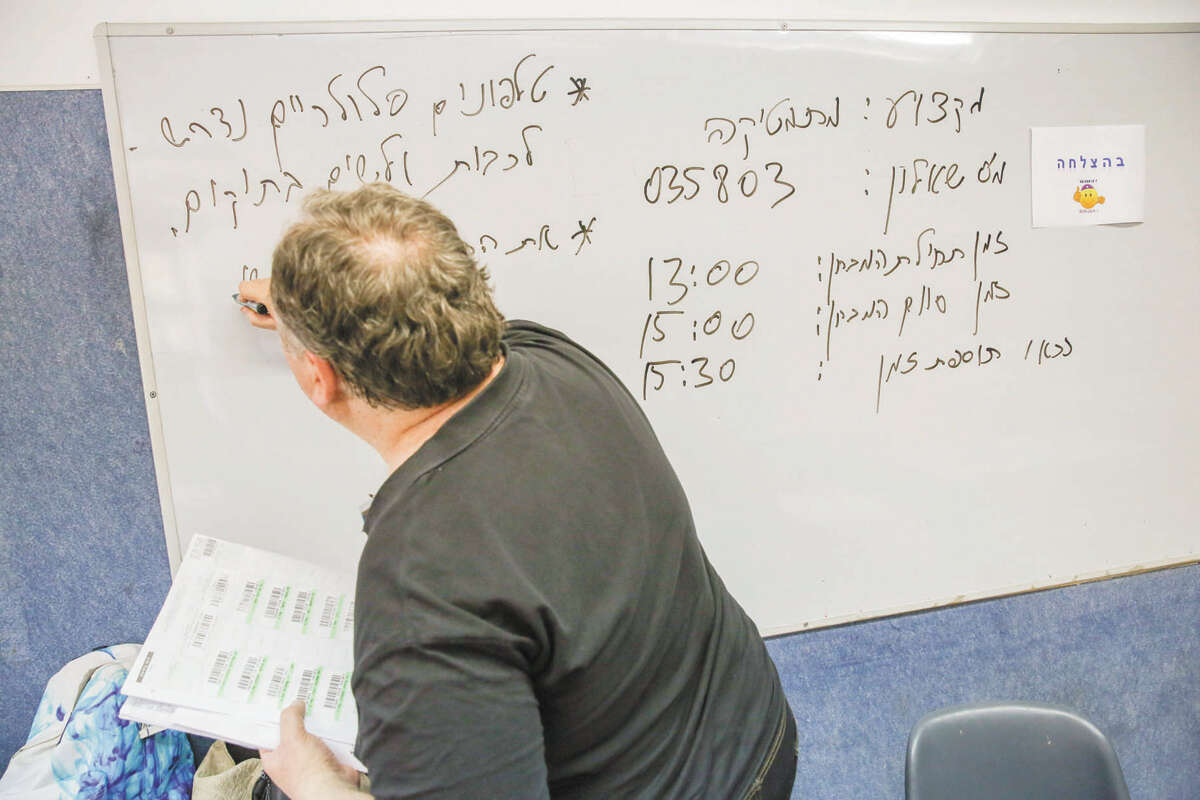 מקצוע : מתמטיקה
מס שאלון : 035803
זמן תחילת המבחן : 13:00
זמן סוף המבחן : 15:00
זכאי תוספת זמן : 15:30
בהצלחה
* טלפונים סלולריים נדרש
לכבות ולשים בתיקים.
* את